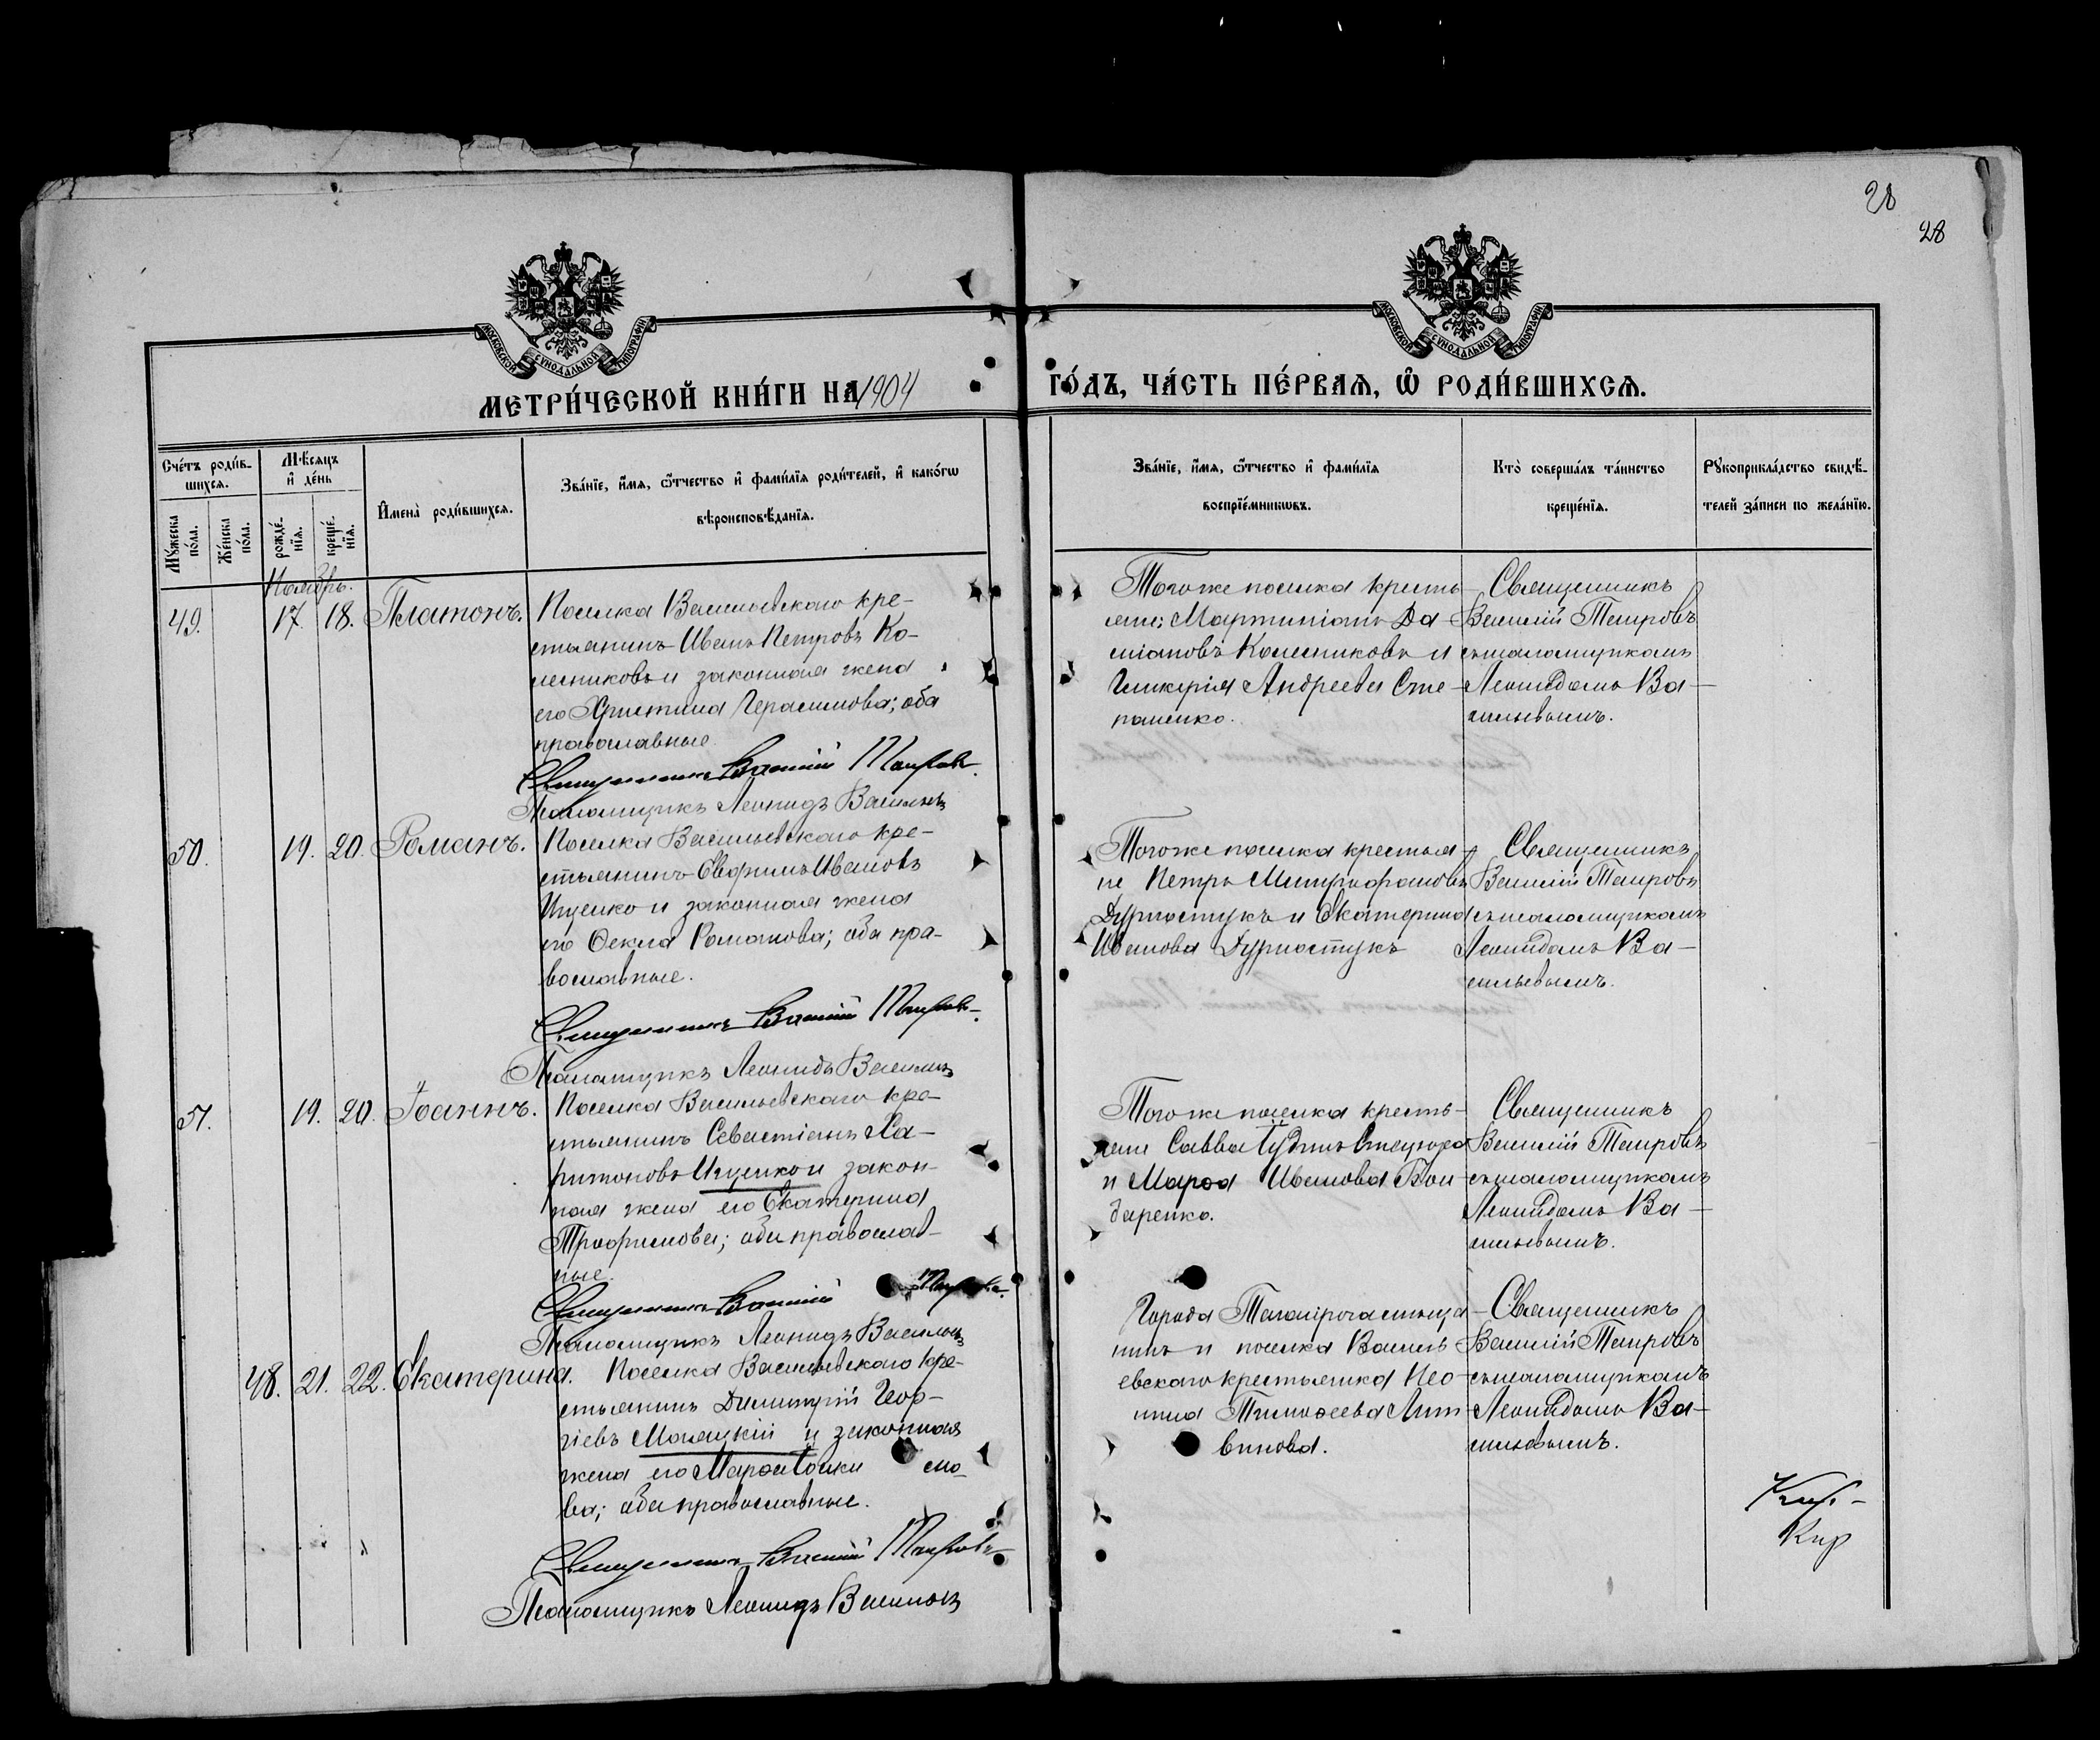 28
28
МОСКОВСКОЙ СѴНОДАЛЬНОЙ ТИПОГРАФІИ
МОСКОВСКОЙ СѴНОДАЛЬНОЙ ТИПОГРАФІИ
МЕТРИ́ЧЕСКОЙ КНИ́ГИ НА 1904
ГО́ДЪ, ЧА́СТЬ ПЕ́РВАѦ, Ѡ҆ РОДИ́ВШИХСѦ.
Сче́тъ роди́в-
шихсѧ.
Мꙋ́жеска по́ла.
Же́нска по́ла.
Мѣ́сѧцъ и҆ де́нь
рожде́-нїѧ.
креще́-нїѧ.
И҆мена̀ роди́вшихсѧ.
Зва́нїе, и҆́мѧ, ѻ҆́тчество и҆ фами́лїѧ роди́телей, и҆ како́гѡ
вѣроисповѣ́данїѧ.
Зва́нїе, и҆́мѧ, ѻ҆́тчество и҆ фами́лїѧ
воспрїе́мникѡвъ.
Кто̀ соверша́лъ та́инство
креще́нїѧ.
Рꙋкоприкла́дство свидѣ́-
телей за́писи по жела́нїю.
Ноябрь.
49. 17. 18. Платонъ.
Поселка Васильевскаго кре-
стьянинъ Иванъ Петровъ Ко-
лесниковъ и законная жена
его Христина Герасимова; оба
православные.
Священникъ Василій Таировъ.
Псаломщикъ Леонидъ Васильевъ
Тогоже поселка кресть-
яне: Мартиніанъ Да-
міановъ Колесниковъ и
Гликерія Андреева Сте-
паненко.
Священникъ
Василій Таировъ
съ псаломщикомъ
Леонидомъ Ва-
сильевымъ.
50. 19. 20. Романъ.
Поселка Васильевскаго кре-
стьянинъ Евфимъ Ивановъ
Ищенко и законная жена
его Ѳекла Романова; оба пра-
вославные.
Священникъ Василій Таировъ.
Псаломщикъ Леонидъ Васильевъ
Тогоже поселка крестья-
не Петръ Митрофановъ
Дурностукъ и Екатерина
Иванова Дурностукъ
Священникъ
Василій Таировъ
съ псаломщикомъ
Леонидомъ Ва-
сильевымъ.
51. 19. 20. Іоаннъ.
Поселка Васильевскаго кре-
стьянинъ Севастіанъ Ха-
ритоновъ Ищенко и закон-
ная жена его Екатерина
Трофимова; оба православ-
ные.
Священникъ Василій Таировъ.
Псаломщикъ Леонидъ Васильевъ
Тогоже поселка кресть-
яне Савва
и Марѳа Иванова Бон-
даренко.
Священникъ
Василій Таировъ
съ псаломщикомъ
Леонидомъ Ва-
сильевымъ.
48. 21. 22. Екатерина.
Поселка Васильевскаго кре-
стьянинъ Димитрій Геор-
гіевъ и законная
жена его Марѳа
ва; оба православные.
Священникъ Василій Таировъ
Псаломщикъ Леонидъ Васильевъ
Города Таганрога мѣща-
нинъ и поселка Василь-
евскаго крестьянка Нео-
нила Тимоѳеева Лит-
винова.
Священникъ
Василій Таировъ
съ псаломщикомъ
Леонидомъ Ва-
сильевымъ.
Кир